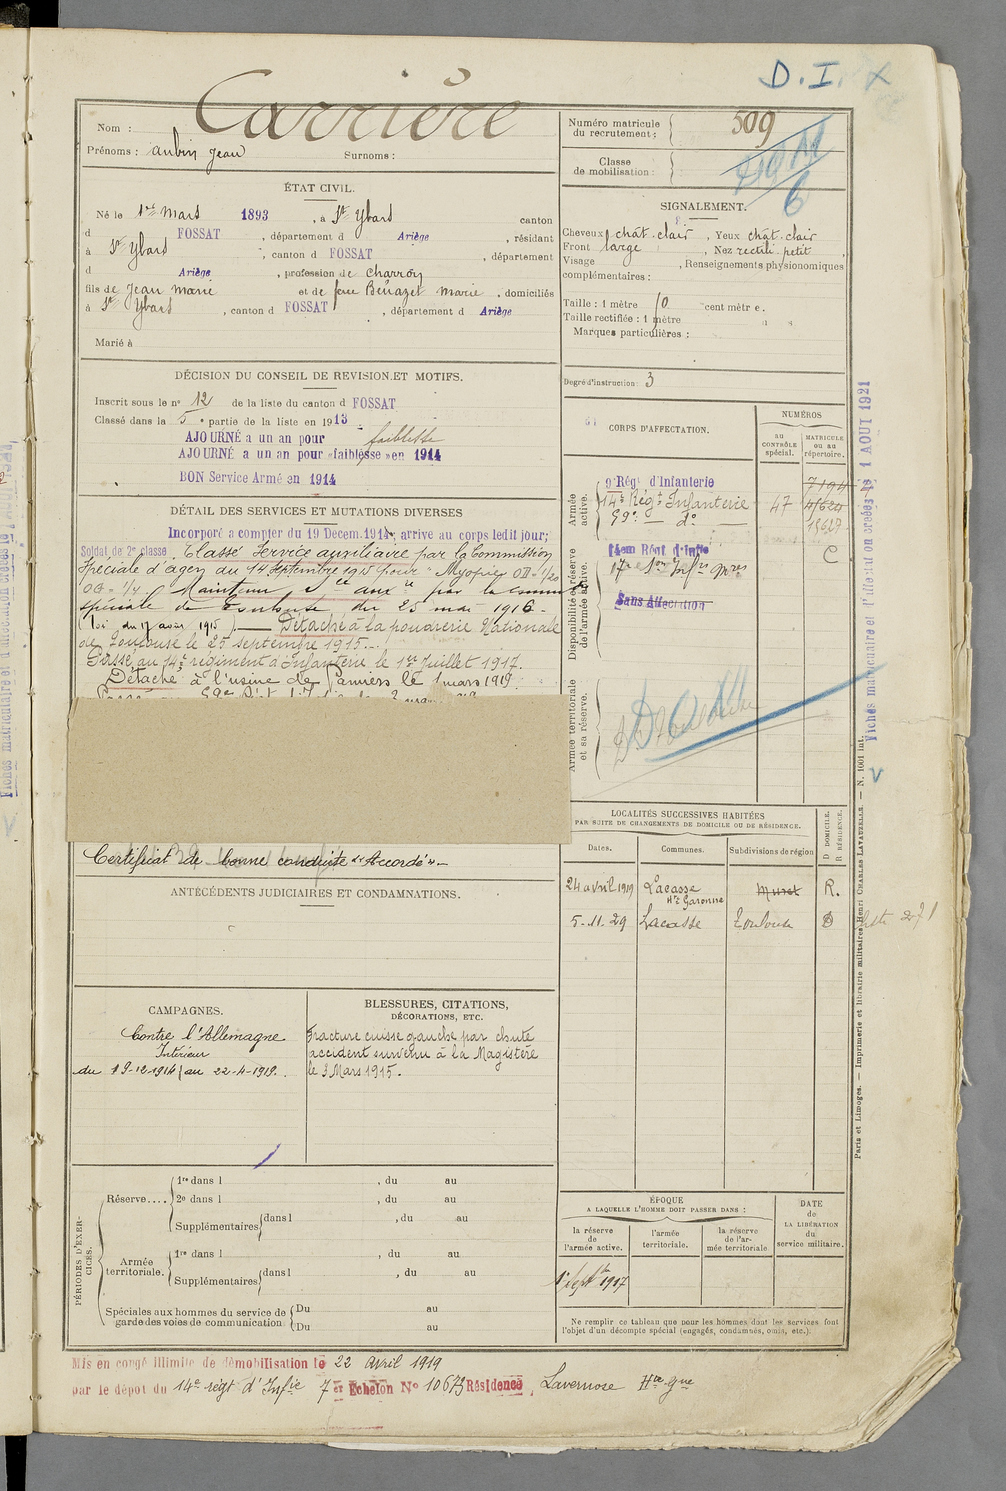 D. I. X
Carrière
Nom :
Prénoms : Aubin Jean Surnoms :
Numéro matricule du recrutement : 509
Classe de mobilisation :
ÉTAT CIVIL.
Né le 1er Mars 1893, à St Ybars canton
d FOSSAT, département d Ariège, résidant
à St Ybars, canton d FOSSAT, département
d Ariège, profession de charron
fils de Jean Marie et de feue Bénazet Marie, domiciliés
à St Ybars, canton d FOSSAT, département d Ariège
Marié à
SIGNALEMENT.
Cheveux chât. clair, Yeux chât. clair
Front large, Nez rectili. petit,
Visage , Renseignements physionomiques
complémentaires :
Taille : 1 mètre 70 centimètre.
Taille rectifiée : 1 mètre
Marques particulières :
Degré d'instruction : 3
DÉCISION DU CONSEIL DE REVISION ET MOTIFS.
Inscrit sous le n° 12 de la liste du canton d FOSSAT
Classé dans la 5e partie de la liste en 1913
AJOURNÉ a un an pour faiblesse
AJOURNÉ a un an pour «faiblesse» en 1914
BON Service Armé en 1914
DÉTAIL DES SERVICES ET MUTATIONS DIVERSES
Incorporé a compter du 19 Décem. 1914; arrive au corps ledit jour;
Soldat de 2e classe. Classé Service auxiliaire par la Commission
Spéciale d'Agen du 14 Septembre 1915 pour "Myopie OD = 1/20
OG = 1/4. Maintenu Sce auxre par la comm
spéciale de Toulouse du 25 mai 1916 -
(loi du 17 août 1915). — Détaché à la poudrerie Nationale
de Toulouse le 25 septembre 1915. -
Passé au 14e régiment d'Infanterie le 1er Juillet 1917.
Détaché à l'usine de Pamiers le 1 mars 1919.
Certificat de bonne conduite "Accordé". -
CORPS D'AFFECTATION.
NUMÉROS
au contrôle spécial.
MATRICULE ou au répertoire.
Armée active.
9e Régt d'Infanterie 7194
14e Régt Infanterie 47
59e — do — 15627
Disponibilité et réserve de l'armée active.
14em Régt d'Infie C
17e Son Infrs Mres
Sans Affectation
Armée territoriale et sa réserve.
LOCALITÉS SUCCESSIVES HABITÉES
PAR SUITE DE CHANGEMENTS DE DOMICILE OU DE RÉSIDENCE.
Dates. Communes. Subdivisions de région D DOMICILE. R RÉSIDENCE.
24 avril 1919 Lacasse Hte Garonne Muret R.
5.11.29 Lacasse Toulouse D
ANTÉCÉDENTS JUDICIAIRES ET CONDAMNATIONS.
CAMPAGNES.
Contre l'Allemagne
Intérieur
du 19-12-1914 au 22-4-1919.
BLESSURES, CITATIONS,
DÉCORATIONS, ETC.
Fracture cuisse gauche par chute
accident survenu à la Magistère
le 3 Mars 1915.
PÉRIODES D'EXERCICES.
Réserve.... 1re dans l , du au
2e dans l , du au
Supplémentaires dans l , du au
Armée territoriale. 1re dans l , du au
Supplémentaires dans l , du au
Spéciales aux hommes du service de garde des voies de communication Du au
Du au
ÉPOQUE
A LAQUELLE L'HOMME DOIT PASSER DANS :
la réserve de l'armée active.
l'armée territoriale.
la réserve de l'armée territoriale
DATE de LA LIBÉRATION du service militaire.
1er Sept 1917
Ne remplir ce tableau que pour les hommes dont les services font
l'objet d'un décompte spécial (engagés, condamnés, omis, etc.).
Mis en congé illimité de démobilisation le 22 Avril 1919
par le dépôt du 14e régt d'Infie 7er Echelon N° 10673 Résidence, Lavernose Hte Gne
Paris et Limoges. — Imprimerie et librairie militaires Henri CHARLES LAVAUZELLE. — N. 1001 int.
Fiches matriculaire et d'affectation créées le 1 AOUT 1921